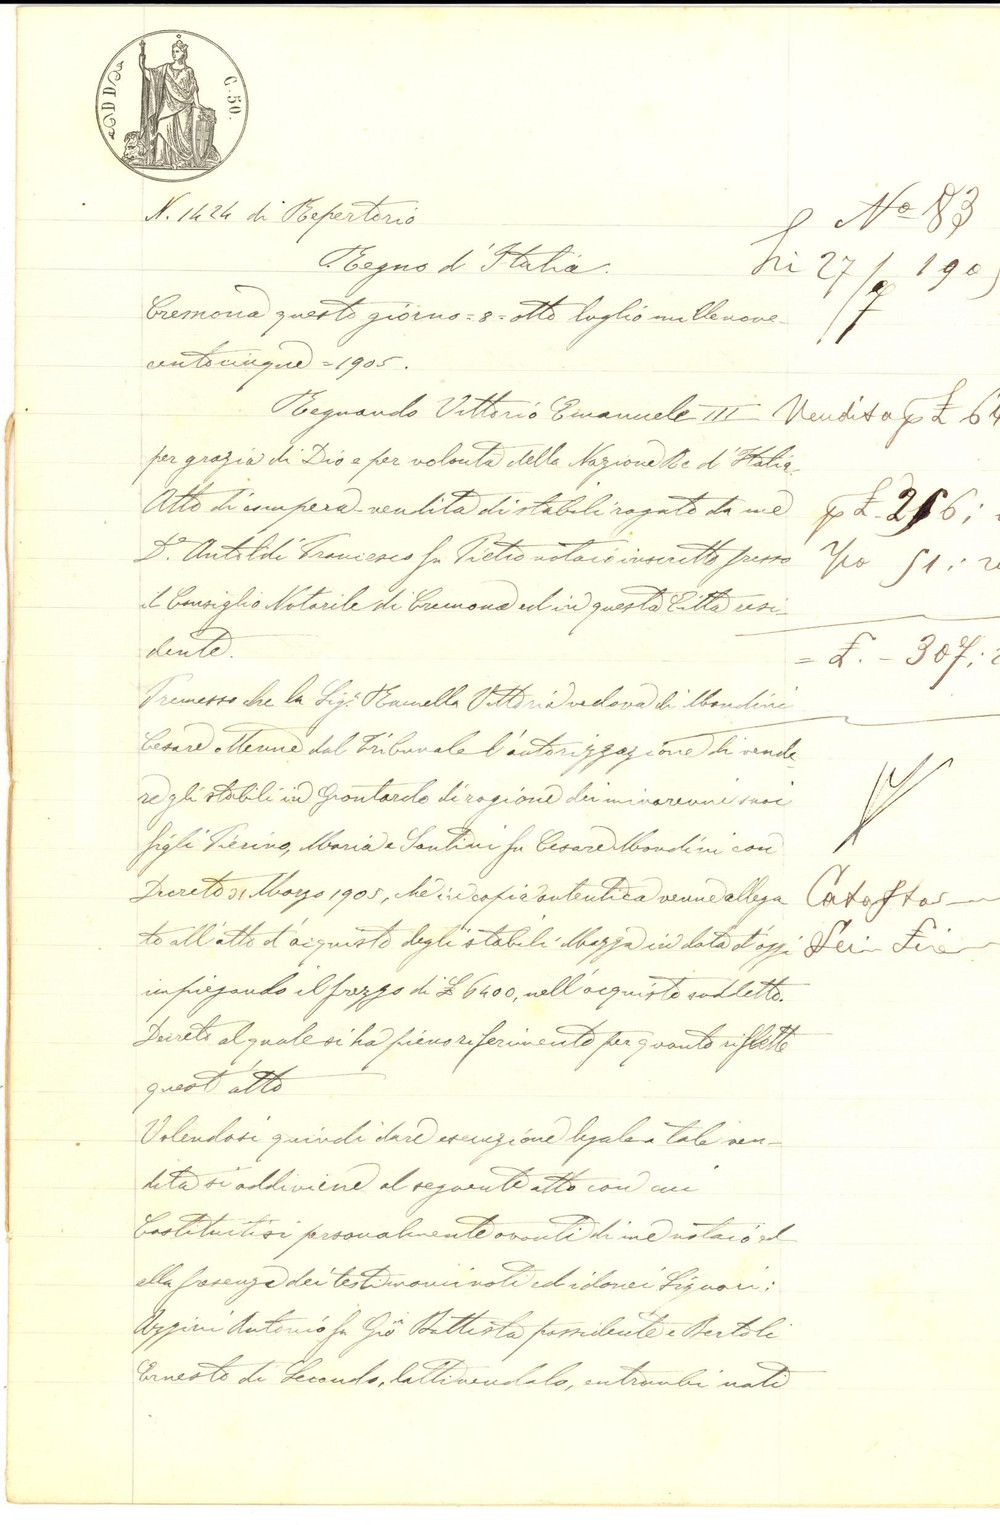 C. 50.
N. 1424 di Repertorio
Nº 83
Regno d'Italia.
Li 27/7 190
Cremona questo giorno = 8 = otto luglio millenove-
centocinque = 1905.
Regnando Vittorio Emanuele III
Vendita p £ 64
per grazia di Dio e per volontà della Nazione Re d'Italia.
Atto di compera-vendita di stabili rogato da me
p £ 256;
Dr. Antoldi Francesco fu Pietro notaio inscritto presso
51:
il Consiglio Notarile di Cremona ed in questa Città resi-
dente.
= £. - 307;
Premesso che la Sig.ª Vittoria vedova di Mondini
Cesare ottenne dal Tribunale l'autorizzazione di vende-
re gli stabili in Grontardo di ragione dei minorenni suoi
figli Pierino, Maria e Santini fu Cesare Mondini con
Decreto 31 Marzo 1905, che in copia autentica venne allega
Catastas
to all'atto d'acquisto degli stabili Mazza in data d'oggi
impiegando il prezzo di £ 6400, nell'acquisto suddetto.
Decreto al quale si ha pieno riferimento per quanto riflette
quest'atto
Volendosi quindi dare esecuzione legale a tale ven-
dita si addiviene al seguente atto con cui
Costituitisi personalmente avanti di me notaio ed
alla presenza dei testimoni noti ed idonei Signori:
Azzini Antonio fu Gio Battista possidente e Bertoli
Ernesto di Secondo, lattivendolo, entrambi nati